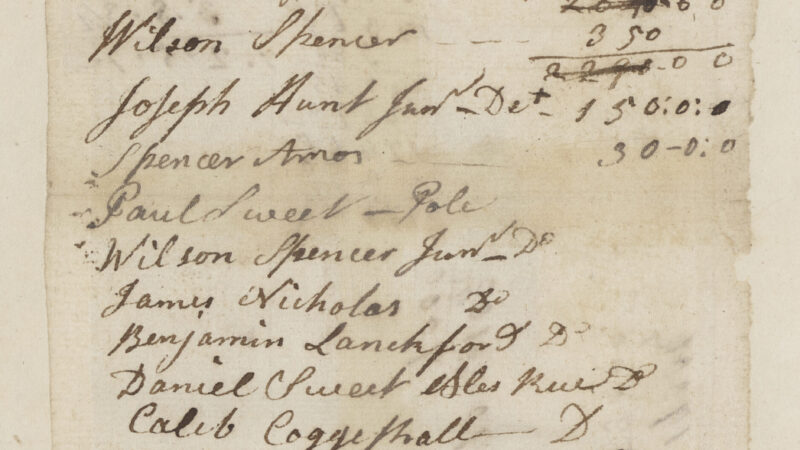 0 0
Wilson Spencer — — 350
0 0
Joseph Hunt Junr — Det — 150:0:0
Spencer Amos — 30-0:0
Paul Sweet — Pole
Wilson Spencer Junr — Do
James Nicholas Do
Benjamin Lanckford Do
Daniel Sweet Do
Calib Coggeshall — D